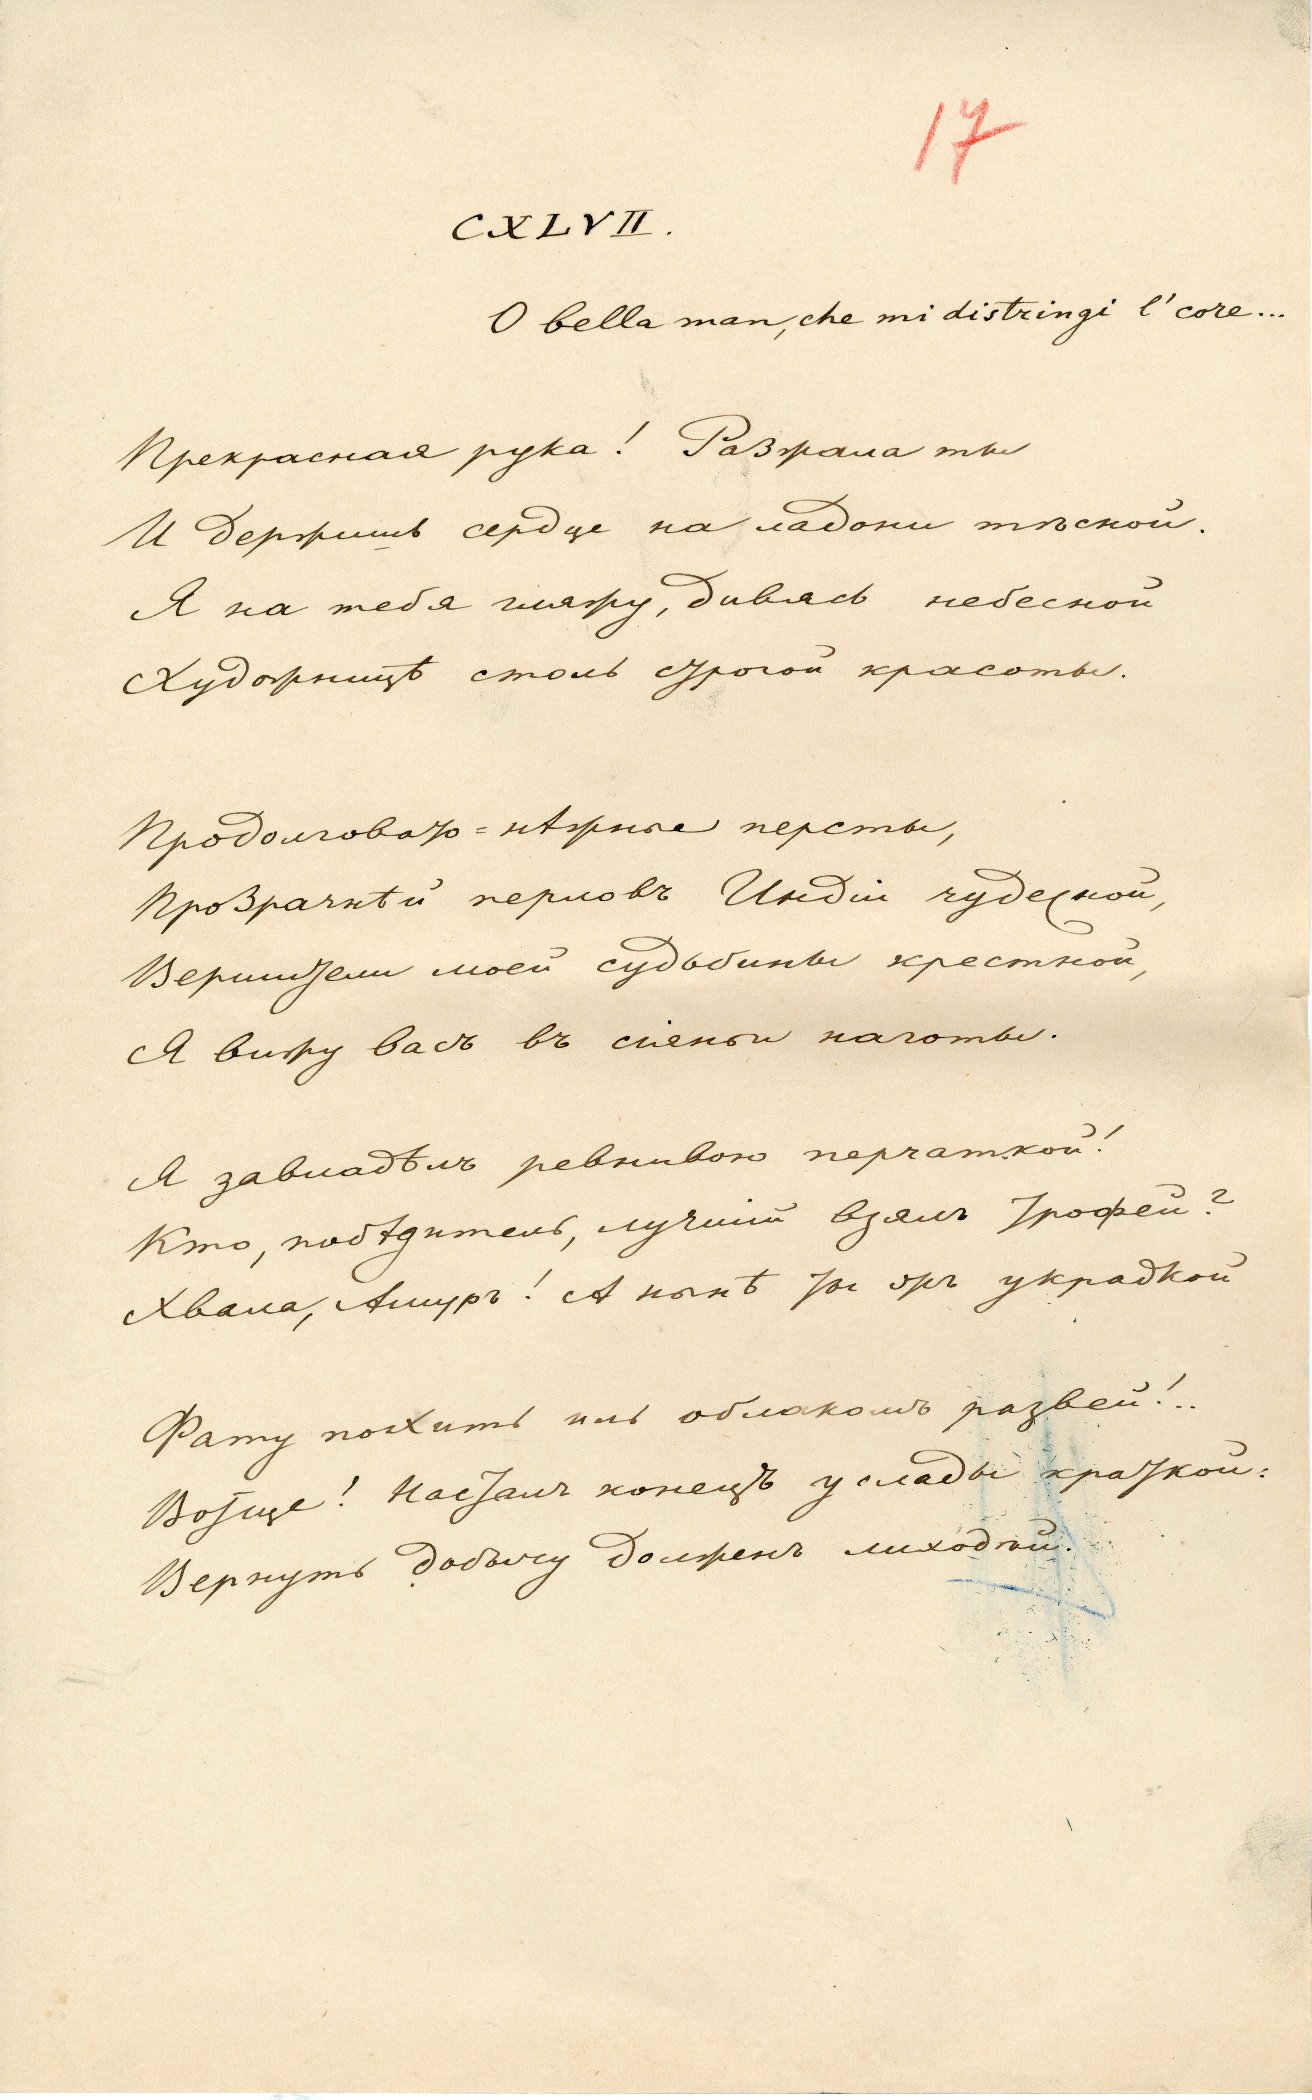 17
CXLVII.
O bella man, che mi distringi l' core...
Прекрасная рука! Разжала ты
И держишь сердце на ладони тѣсной.
Я на тебя гляжу, дивясь небесной
Художницѣ столь строгой красоты.
Продолговато-нѣжные персты,
Прозрачнѣй перловъ Индіи чудесной,
Вершители моей судьбины крестной,
Я вижу васъ въ сіяньи наготы.
Я завладѣлъ ревнивою перчаткой!
Кто, побѣдитель, лучшій взялъ трофей?
Хвала, Амуръ! А нынѣ ты жъ украдкой
Фату похить иль облакомъ развей!..
Вотще! Насталъ конецъ услады краткой:
Вернуть добычу долженъ лиходѣй.